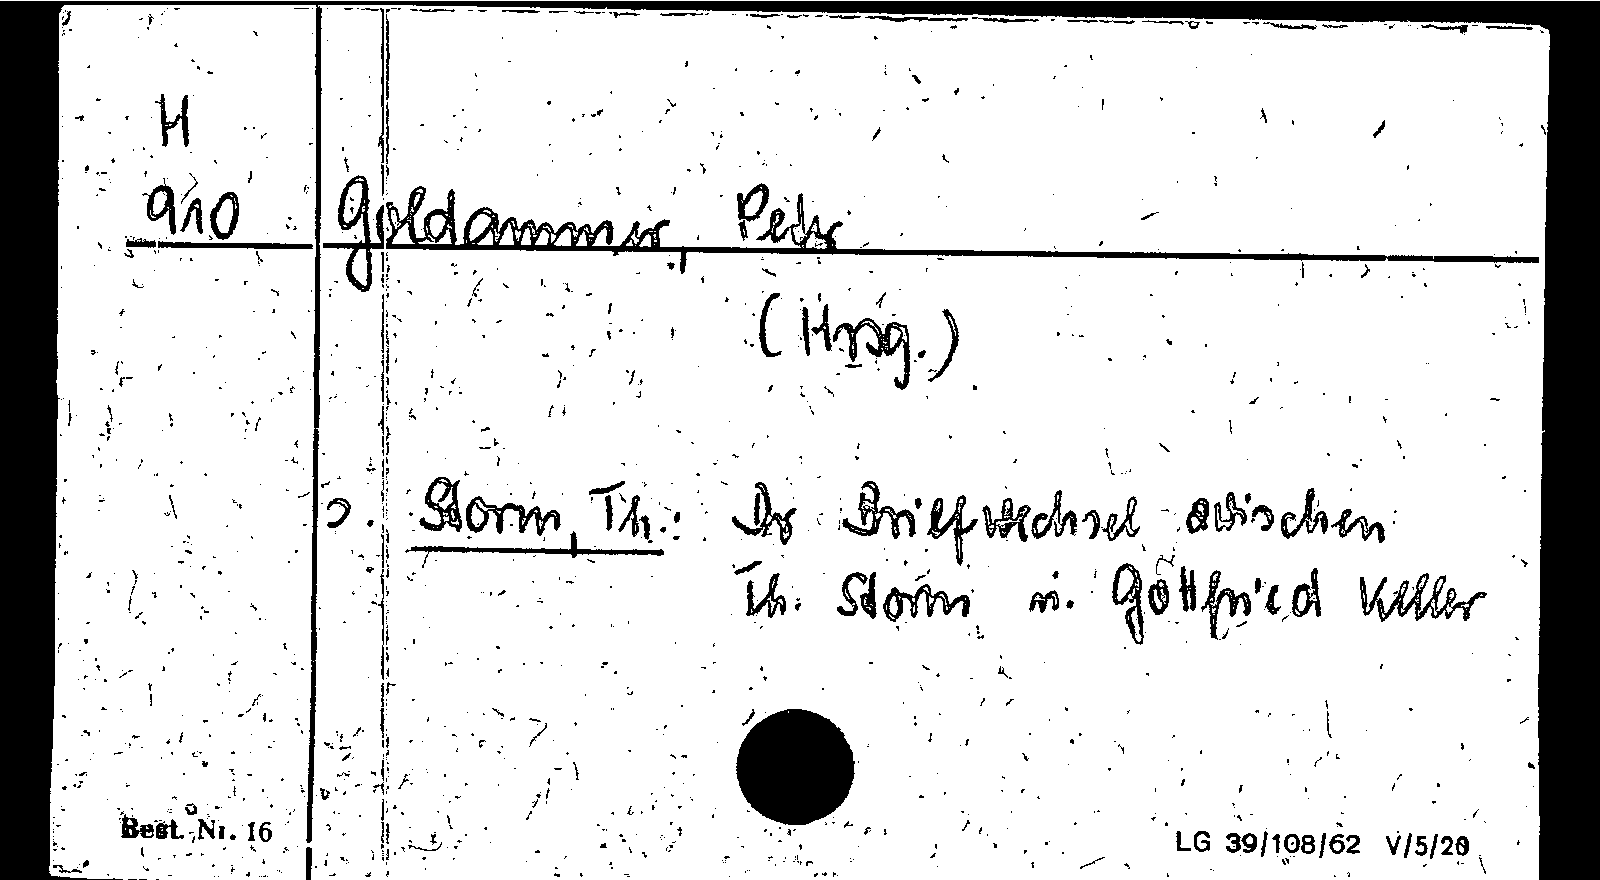 H
910 Goldammer, Peter
(Hrsg.)
s. Storm, Th.: Der Briefwechsel zwischen
Th. Storm u. Gottfried Keller
Best. Nr. 16
LG 39/108/62 V/5/20